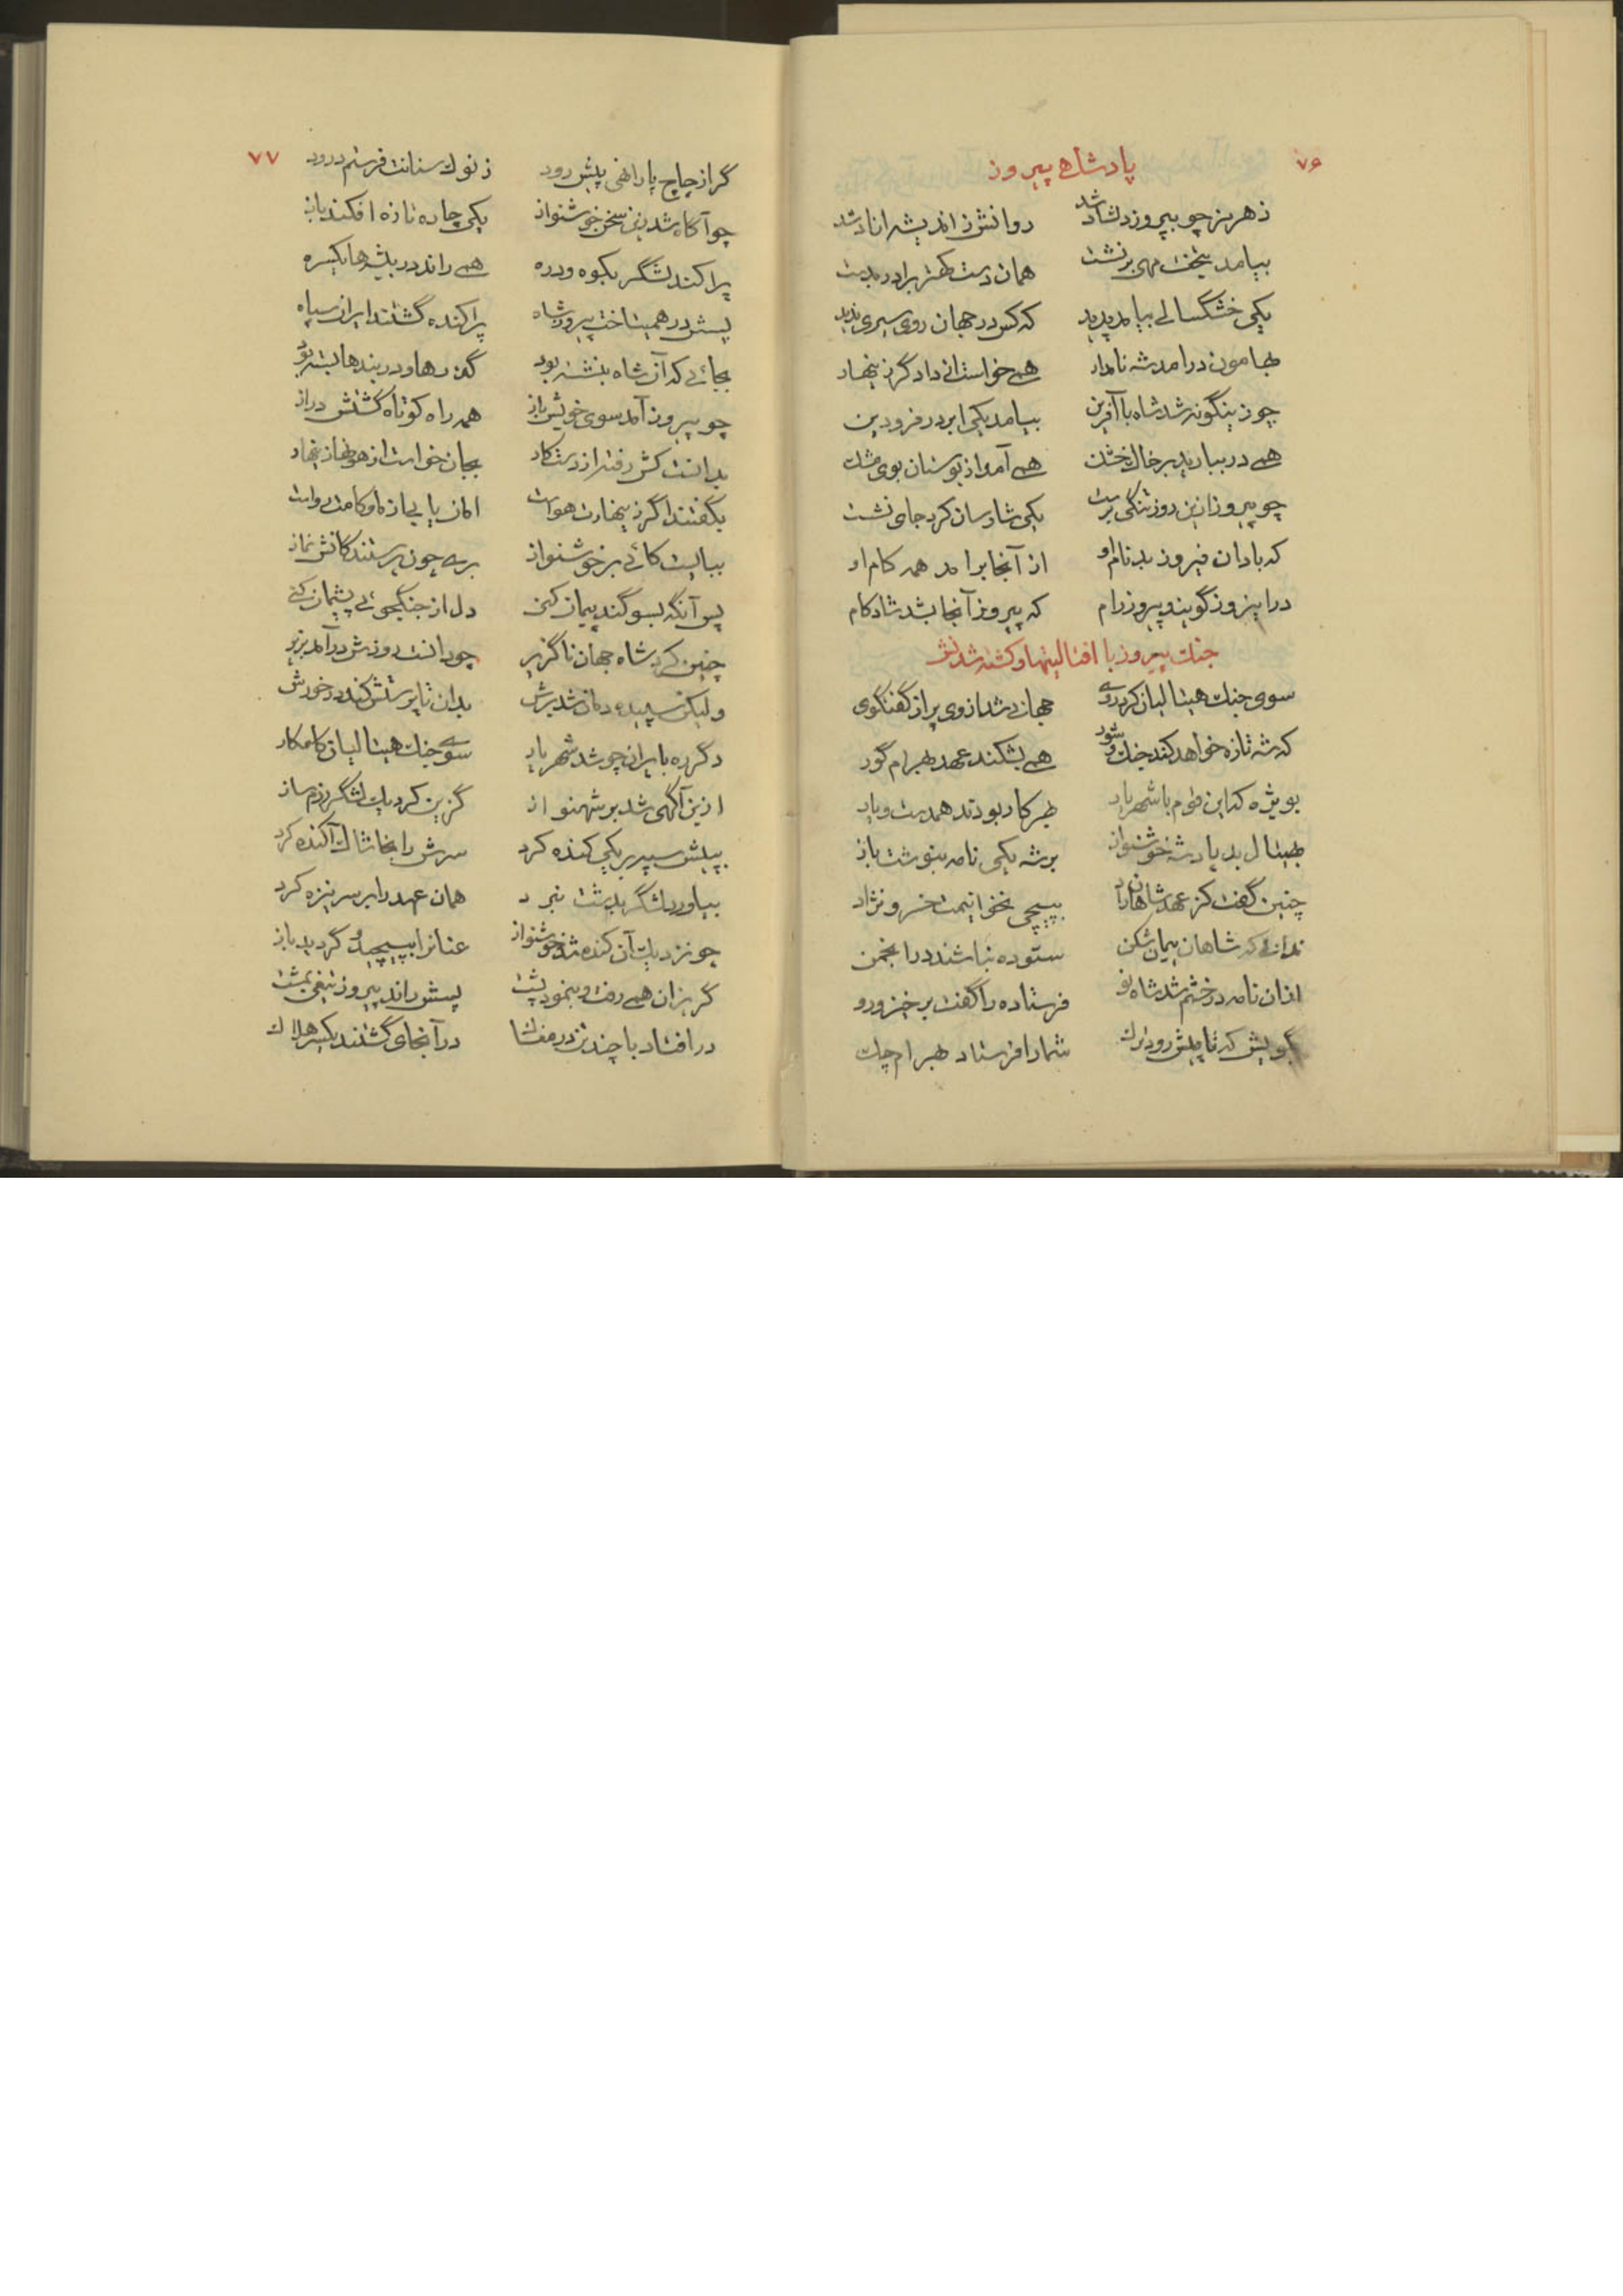 ۷۶
پادشاهی پیروز
ز هرمز چو پیروز دلشاد شد روانش ز اندیشه ازاد شد
بیامد بتخت مهی برنشت همان دست کهتر برادر ببست
یکی خشکسالی بیامد پدید که کس در جهان روی سیری ندید
بهامون درامد شه نامدار همی خواست از دادگر زینهار
چو زینگونه شد شاه با آفرین بیامد یکی ابر در فرودین
همی در ببارید بر خاك خشك همی آمد از بوستان بوی مشك
چو پیروز ازین روز تنگی برست یکی شارسان کرد جای نشست
که بادان فیروز بد نام او از آنجا برامد همه کام او
در این روز گویند پیروزرام که پیروز آنجا بشد شادکام
جنك پیروز با افتالیتها و کشته شدنش
سوی جنك هیتالیان کرد روی جهانی شد از وی پر از گفتگوی
که شه تازه خواهد کند جنك و شور همی بشکند عهد بهرام گور
بویژه که این قوم با شهریار بهر کار بودند همدست و یار
بهیتال بد پادشه خوشنواز بر شه یکی نامه بنوشت باز
چنین گفت کز عهد شاهان داد بپیچی نخوانیمت خسرو نژاد
ندانی که شاهان پیمان شکن ستوده نباشند در انجمن
ازان نامه در خشم شد شاه نو فرستاده را گفت برخیز و رو
بگویش که تا پیش رود ترك شما را فرستاد بهرام چك
۷۷
گر از چاج پا را نهی پیش رود ز نوك سنانت فرستم درود
چو آگاه شد زین سخن خوشنواز یکی چاره تازه افکند باز
پراکند لشگر بکوه و دره همی راند در بیشه ها یکسره
پسش در همیتاخت پیروز شاه پراکنده گشتند ایران سپاه
بجائی که آن شاه بنشسته بود گذرها و دربندها بسته بود
چو پیروز آمد سوی خویش باز همه راه کوتاه گشتش دراز
بدانست کش رفته از دست کار بجان خواست از هونها زینهار
بگفتند اگر زینهارت هواست امان یابی از ما و کامت رواست
ببایست کائی بر خوشنواز بری چون پرستندگانش نماز
پس آنگه بسوگند پیمان کنی دل از جنگجوئی پشیمان کنی
چنین کرد شاه جهان ناگزیر چو دانست روزش درآمد بزیر
ولیکن سپیده دمان شد برش بدان تا پرستش کند در خورش
دگر ره بایران چو شد شهریار سوی جنك هیتالیان کامکار
ازین آگهی شد بر شهنواز گزین کرد یك لشگر رزم ساز
بپیش سپه بر یکی کنده کرد سرش را بخاشاك آکنده کرد
بیاورد لشگر بدشت نبرد همان عهد را بر سر نیزه کرد
چو نزدیك آن کنده شد خوشنواز عنانرا بپیچید و گردید باز
گریزان همی رفت و بنمود پشت پسش راند پیروز تیغی بمشت
در افتاد با چند تن در مغاك در آنجای گشتند یکسر هلاك